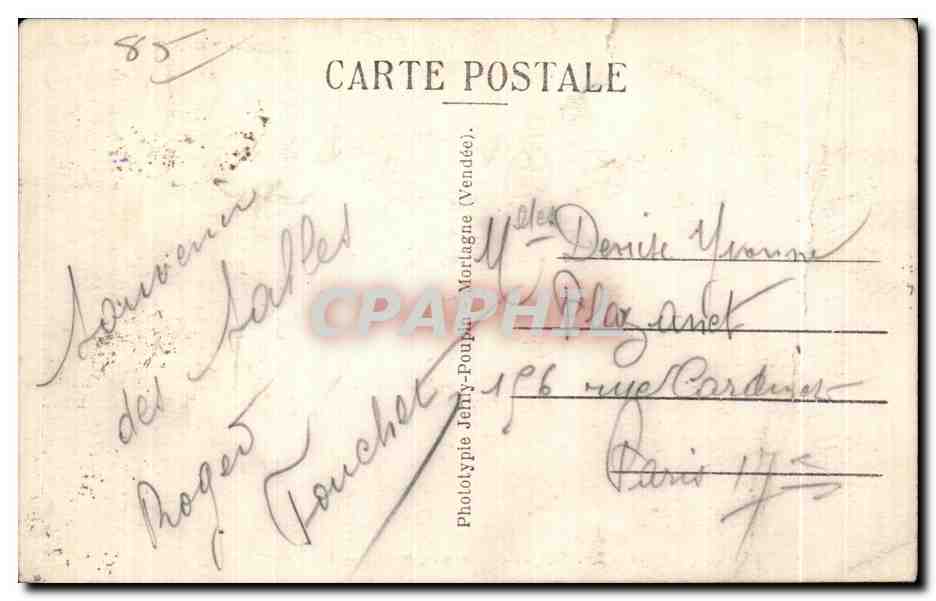 85
CARTE POSTALE
Souvenir
des Sables
Roger
Touchet
Phototypie Jehly-Poupin Mortagne (Vendée).
Melles Denise Yvonne
Plazanet
156 rue Cardinet
Paris 17e
CPAPHIL